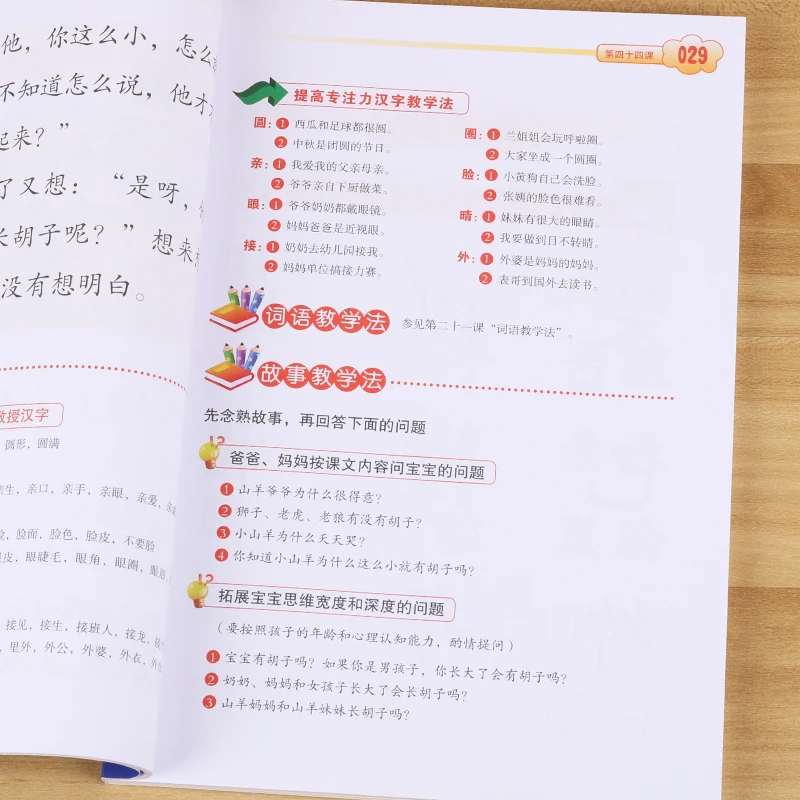 他，你这么小，怎么
不知道怎么说，他才
起来？”
了又想：“是呀，
长胡子呢？”想来
没有想明白。
教授汉字
圆形，圆满
亲生，亲口，亲手，亲眼，亲爱，亲戚
脸，脸面，脸色，脸皮，不要脸
眼皮，眼睫毛，眼角，眼圈，眼眶，
接见，接生，接班人，接龙，接
，里外，外公，外婆，外衣，外
第四十四课 029
提高专注力汉字教学法
圆：1 西瓜和足球都很圆。
2 中秋是团圆的节日。
亲：1 我爱我的父亲母亲。
2 爷爷亲自下厨做菜。
眼：1 爷爷奶奶都戴眼镜。
2 妈妈爸爸是近视眼。
接：1 奶奶去幼儿园接我。
2 妈妈单位搞接力赛。
圈：1 兰姐姐会玩呼啦圈。
2 大家坐成一个圆圈。
脸：1 小黄狗自己会洗脸。
2 张姨的脸色很难看。
睛：1 妹妹有很大的眼睛。
2 我要做到目不转睛。
外：1 外婆是妈妈的妈妈。
2 表哥到国外去读书。
词语教学法 参见第二十一课“词语教学法”。
故事教学法
先念熟故事，再回答下面的问题
爸爸、妈妈按课文内容问宝宝的问题
1 山羊爷爷为什么很得意？
2 狮子、老虎、老狼有没有胡子？
3 小山羊为什么天天哭？
4 你知道小山羊为什么这么小就有胡子吗？
拓展宝宝思维宽度和深度的问题
（要按照孩子的年龄和心理认知能力，酌情提问）
1 宝宝有胡子吗？如果你是男孩子，你长大了会有胡子吗？
2 奶奶、妈妈和女孩子长大了会长胡子吗？
3 山羊妈妈和山羊妹妹长胡子吗？